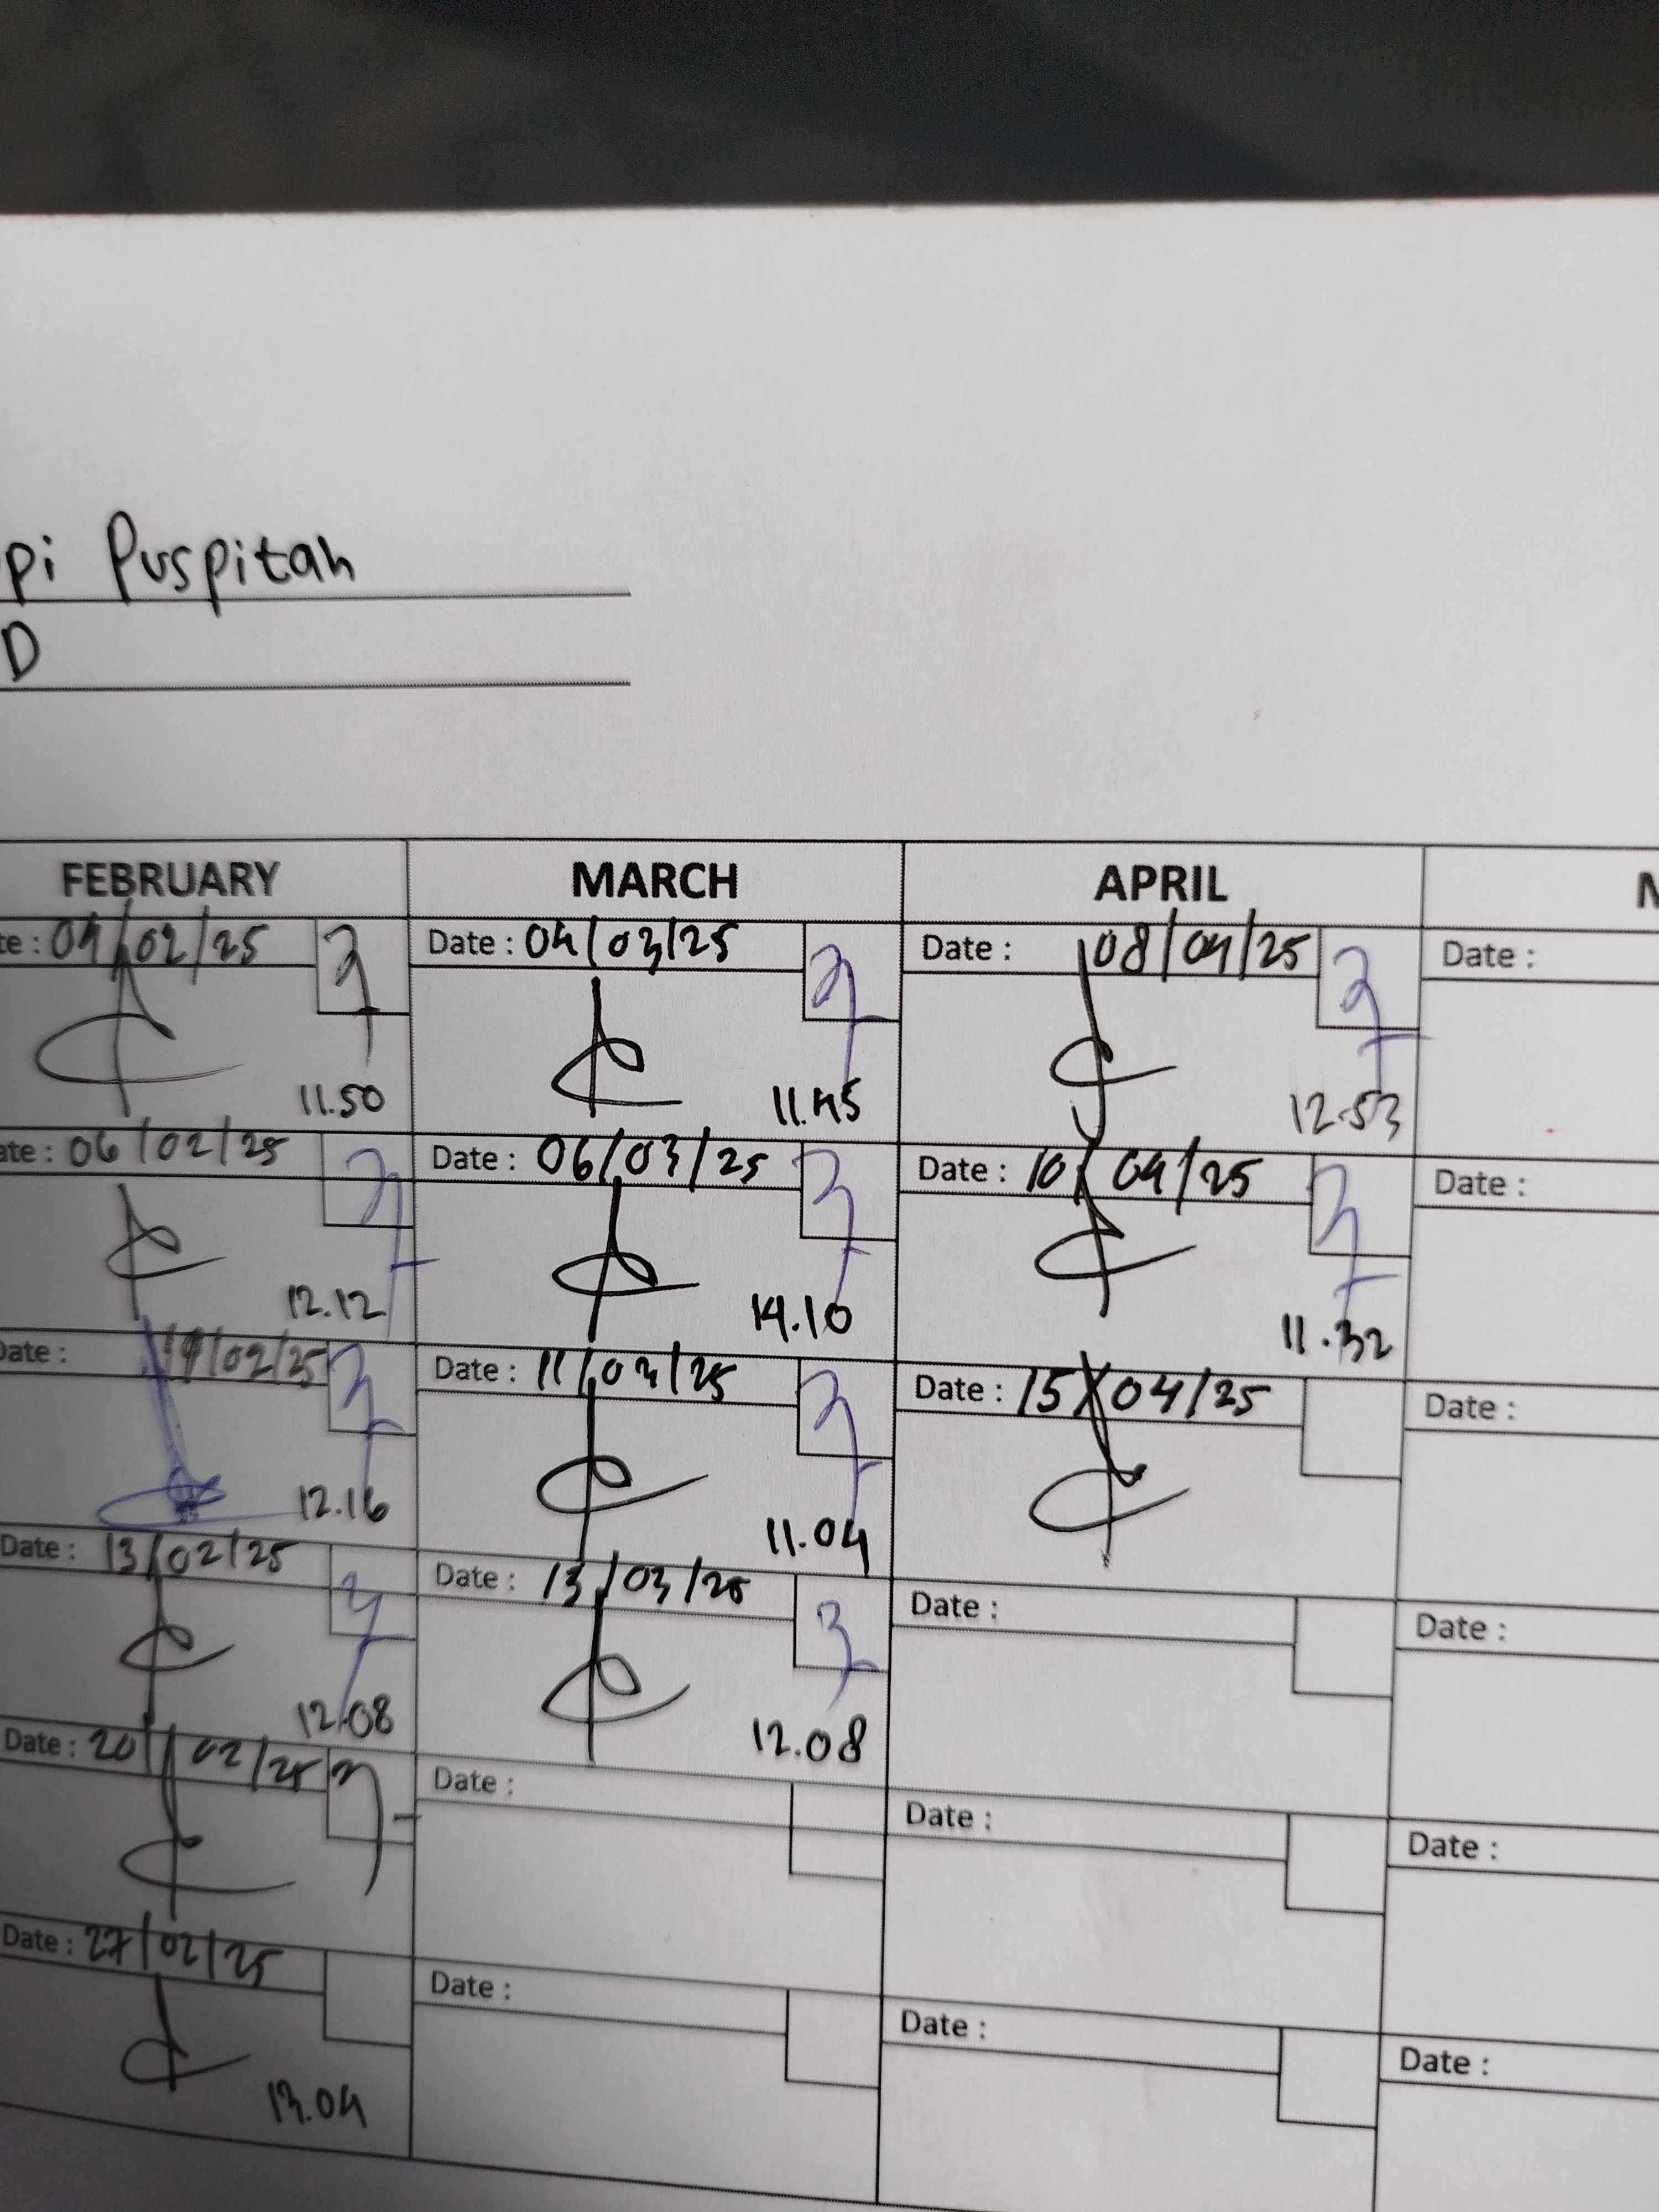 pi Puspitah
D
FEBRUARY MARCH APRIL
te : 04/02/25 Date : 04/03/25 Date : 08/04/25 Date :
11.50 11.45 12.53
ate : 06/02/25 Date : 06/03/25 Date : 10/04/25 Date :
12.12 14.10 11.32
Date : 02/25 Date : 11/03/25 Date : 15/04/25 Date :
12.16 11.04
Date : 13/02/25 Date : 13/03/25 Date : Date :
12.08 12.08
Date : 20/02/25 Date : Date : Date :
Date : 27/02/25 Date : Date : Date :
13.04